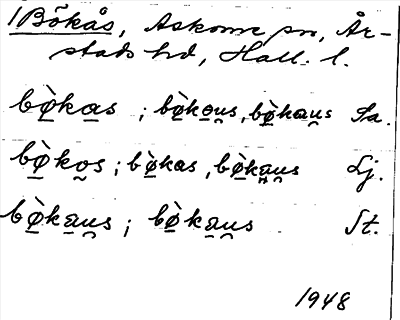 Bökås, Askome sn, År-
stads hd, Hall. l.
bø̀kas ; bø̀kau̯s, bø̀kau̯s Sa.
bø̀ko̯s ; bø̀kas, bø̀kau̯s Lj.
bø̀kau̯s ; bø̀kau̯s St.
1948